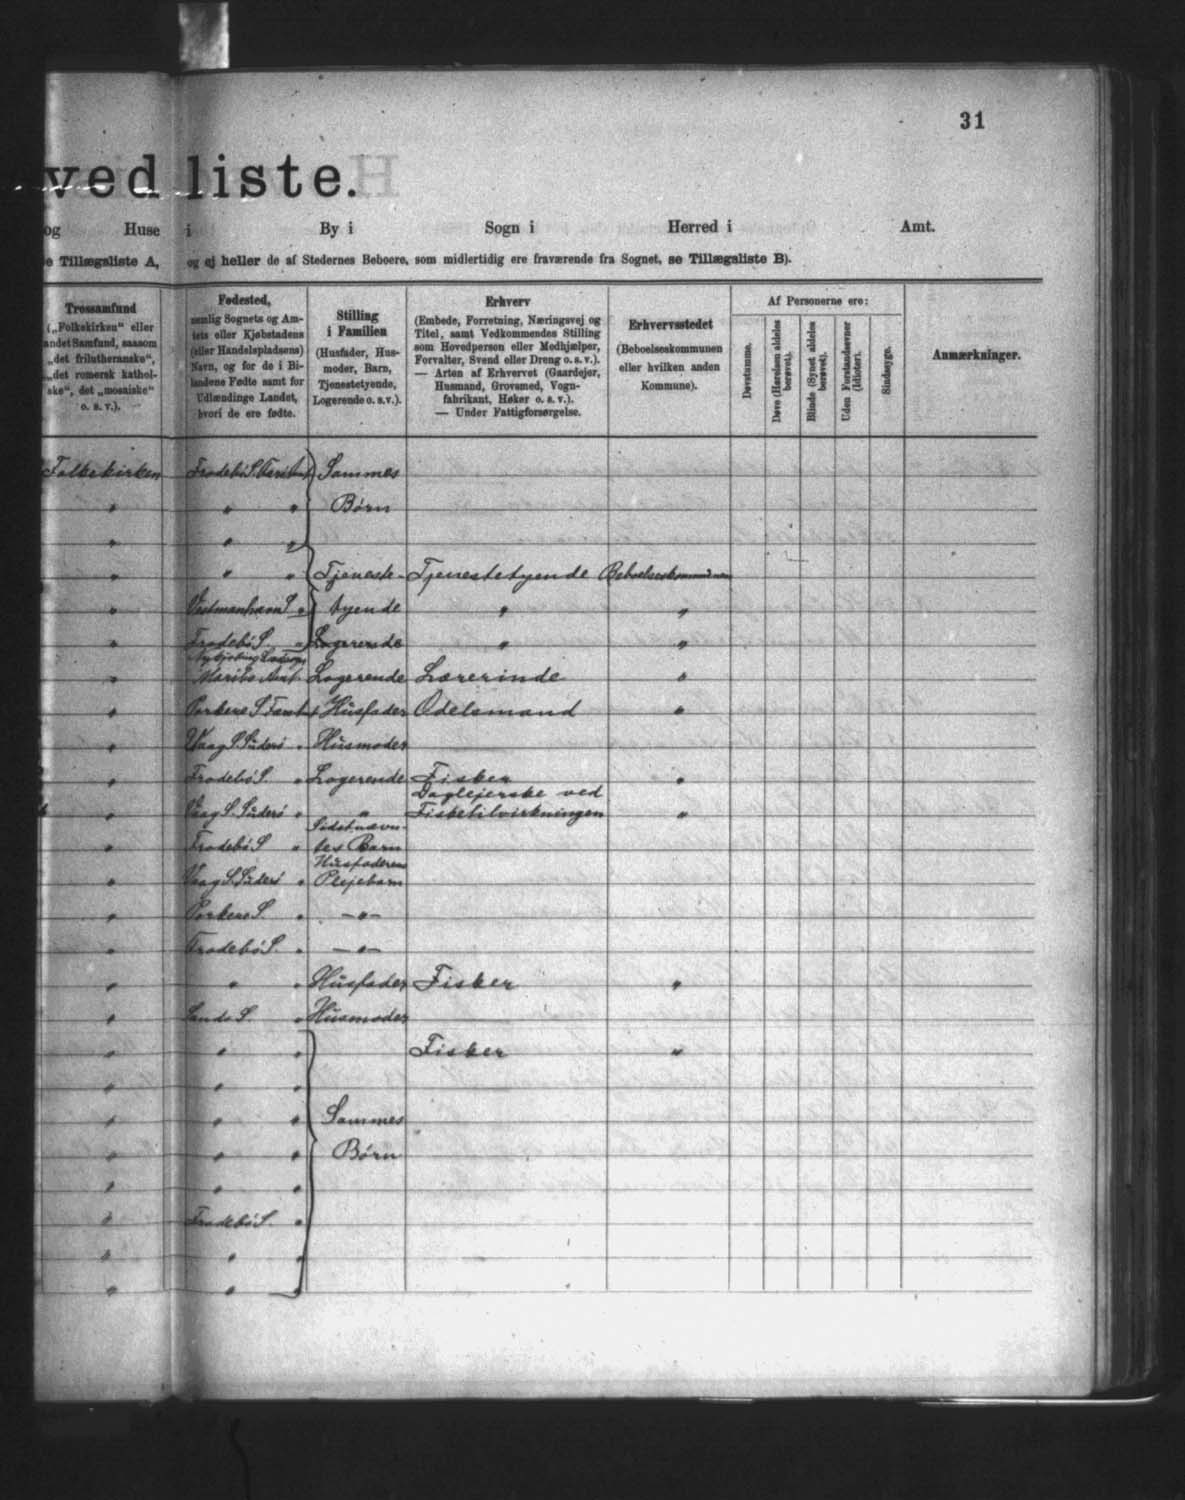 31
vedliste.
og Huse i By i Sogn i Herred i Amt.
e Tillægsliste A, og ej heller de af Stedernes Beboere, som midlertidig ere fraværende fra Sognet, se Tillægsliste B).
Trossamfund
(„Folkekirken“ eller
andet Samfund, saasom
„det frilutheranske“,
„det romersk kathol-
ske“, det „mosaiske“
o. s. v.).
Fødested,
nemlig Sognets og Am-
tets eller Kjøbstadens
(eller Handelspladsens)
Navn, og for de i Bi-
landene Fødte samt for
Udlændinge Landet,
hvori de ere fødte.
Stilling
i Familien
(Husfader, Hus-
moder, Barn,
Tjenestetyende,
Logerende o. s. v.).
Erhverv
(Embede, Forretning, Næringsvej og
Titel, samt Vedkommendes Stilling
som Hovedperson eller Medhjælper,
Forvalter, Svend eller Dreng o. s. v.).
— Arten af Erhvervet (Gaardejer,
Husmand, Grovsmed, Vogn-
fabrikant, Høker o. s. v.).
— Under Fattigforsørgelse.
Erhvervsstedet
(Beboelseskommunen
eller hvilken anden
Kommune).
Af Personerne ere:
Døvstumme.
Døve (Hørelsen aldeles
berøvet).
Blinde (Synet aldeles
berøvet).
Uden Forstandsevner
(Idioter).
Sindssyge.
Anmærkninger.
Folkekirken Frodebö S. Sammes
" " " Børn
" " "
" " " Tjeneste- Tjenestetyende Beboelseskommunen
" Vestmanhavn S " tyende " "
" Frodebö S. " Logerende " "
" Maribo Amt. Logerende Lærerinde "
" Porkere S Husfader Odelsmand "
" Vaag S. Süderö " Husmoder
" Frodebö S. " Logerende Fisker "
Daglejerske ved
" Vaag S. Süderö " " Fisketilvirkningen "
Sidstnævn-
" Frodebö S " tes Barn
Husfaderens
" Vaag S. Süderö " Plejebarn
" Porkere S. " —"—
" Frodebö S. " —"—
" " " Husfader Fisker "
" Sands S. " Husmoder
" " " Fisker "
" " "
" " " Sammes
" " " Børn
" " "
" Frodebö S. "
" " "
" " "